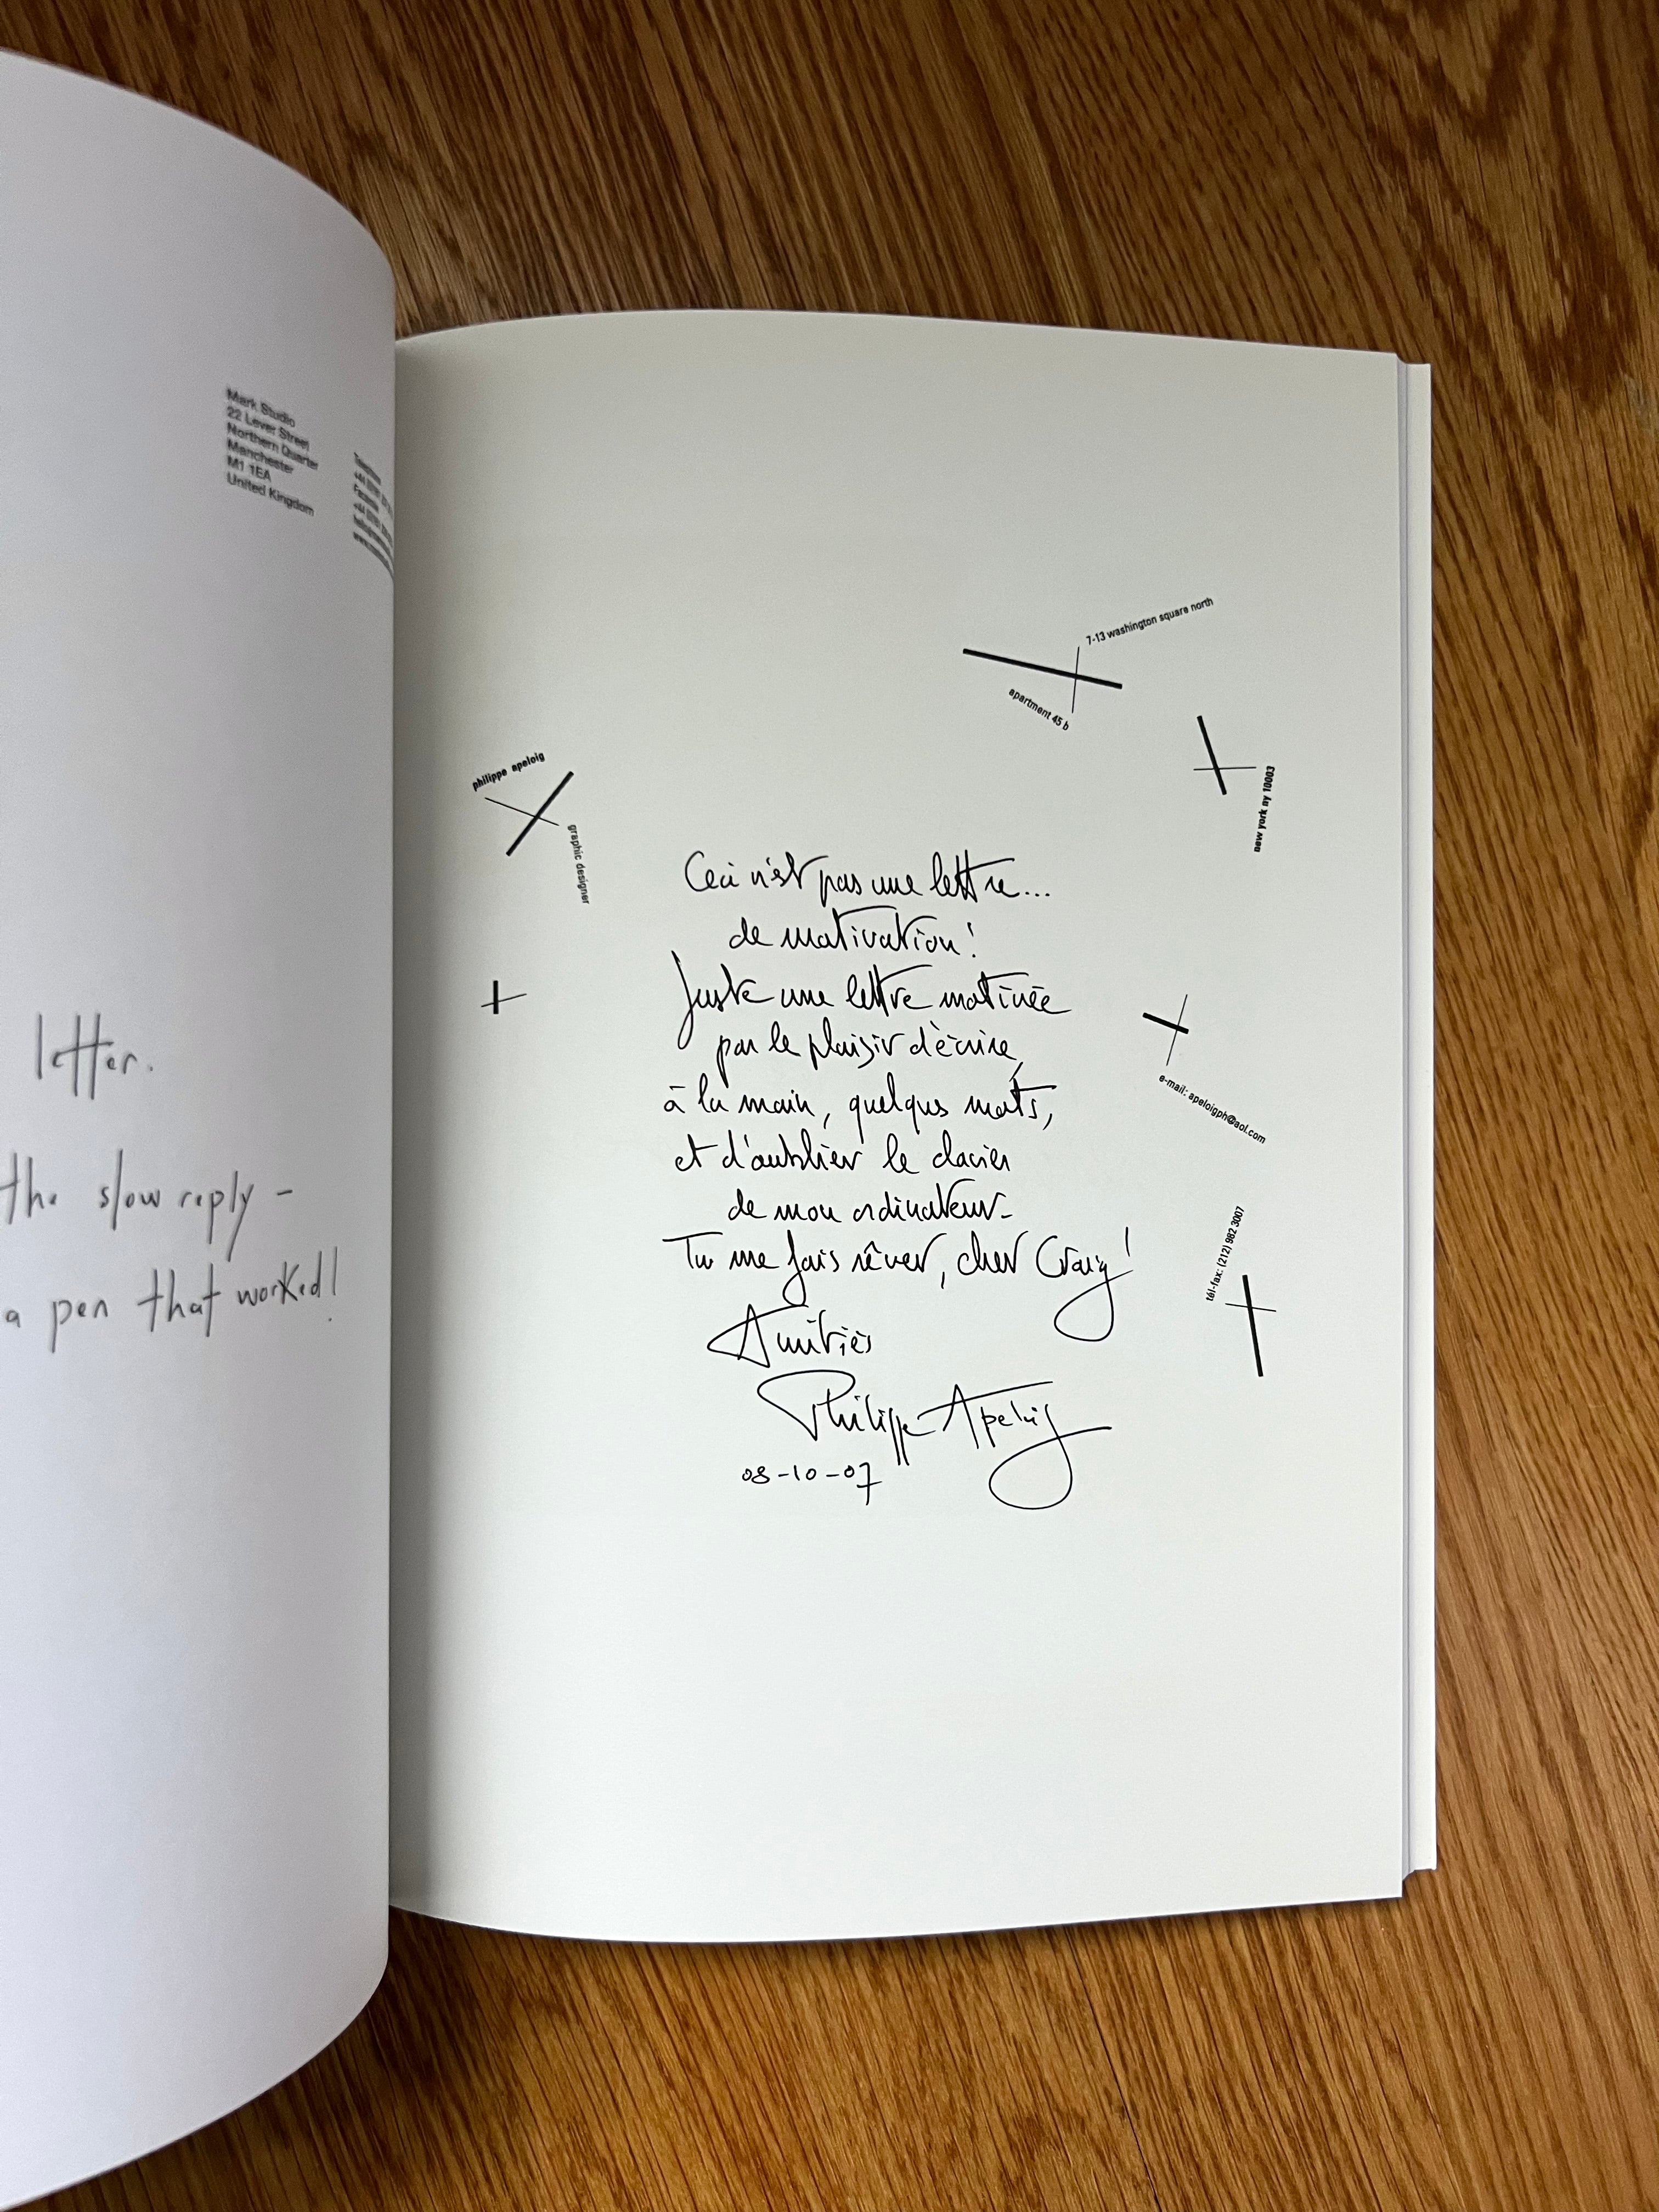 Mark Studio
22 Lever Street
Northern Quarter
Manchester
M1 1EA
United Kingdom
letter.
the slow reply -
a pen that worked!
7-13 washington square north
apartment 45 b
new york ny 10003
philippe apeloig
graphic designer
Ceci n'est pas une lettre...
de motivation!
Juste une lettre motivée
par le plaisir d'écrire,
à la main, quelques mots,
et d'oublier le clavier
de mon ordinateur-
Tu me fais rêver, cher Craig!
Amitiés
Philippe Apeloig
08-10-07
e-mail: apeloigph@aol.com
tél-fax: (212) 982 3007